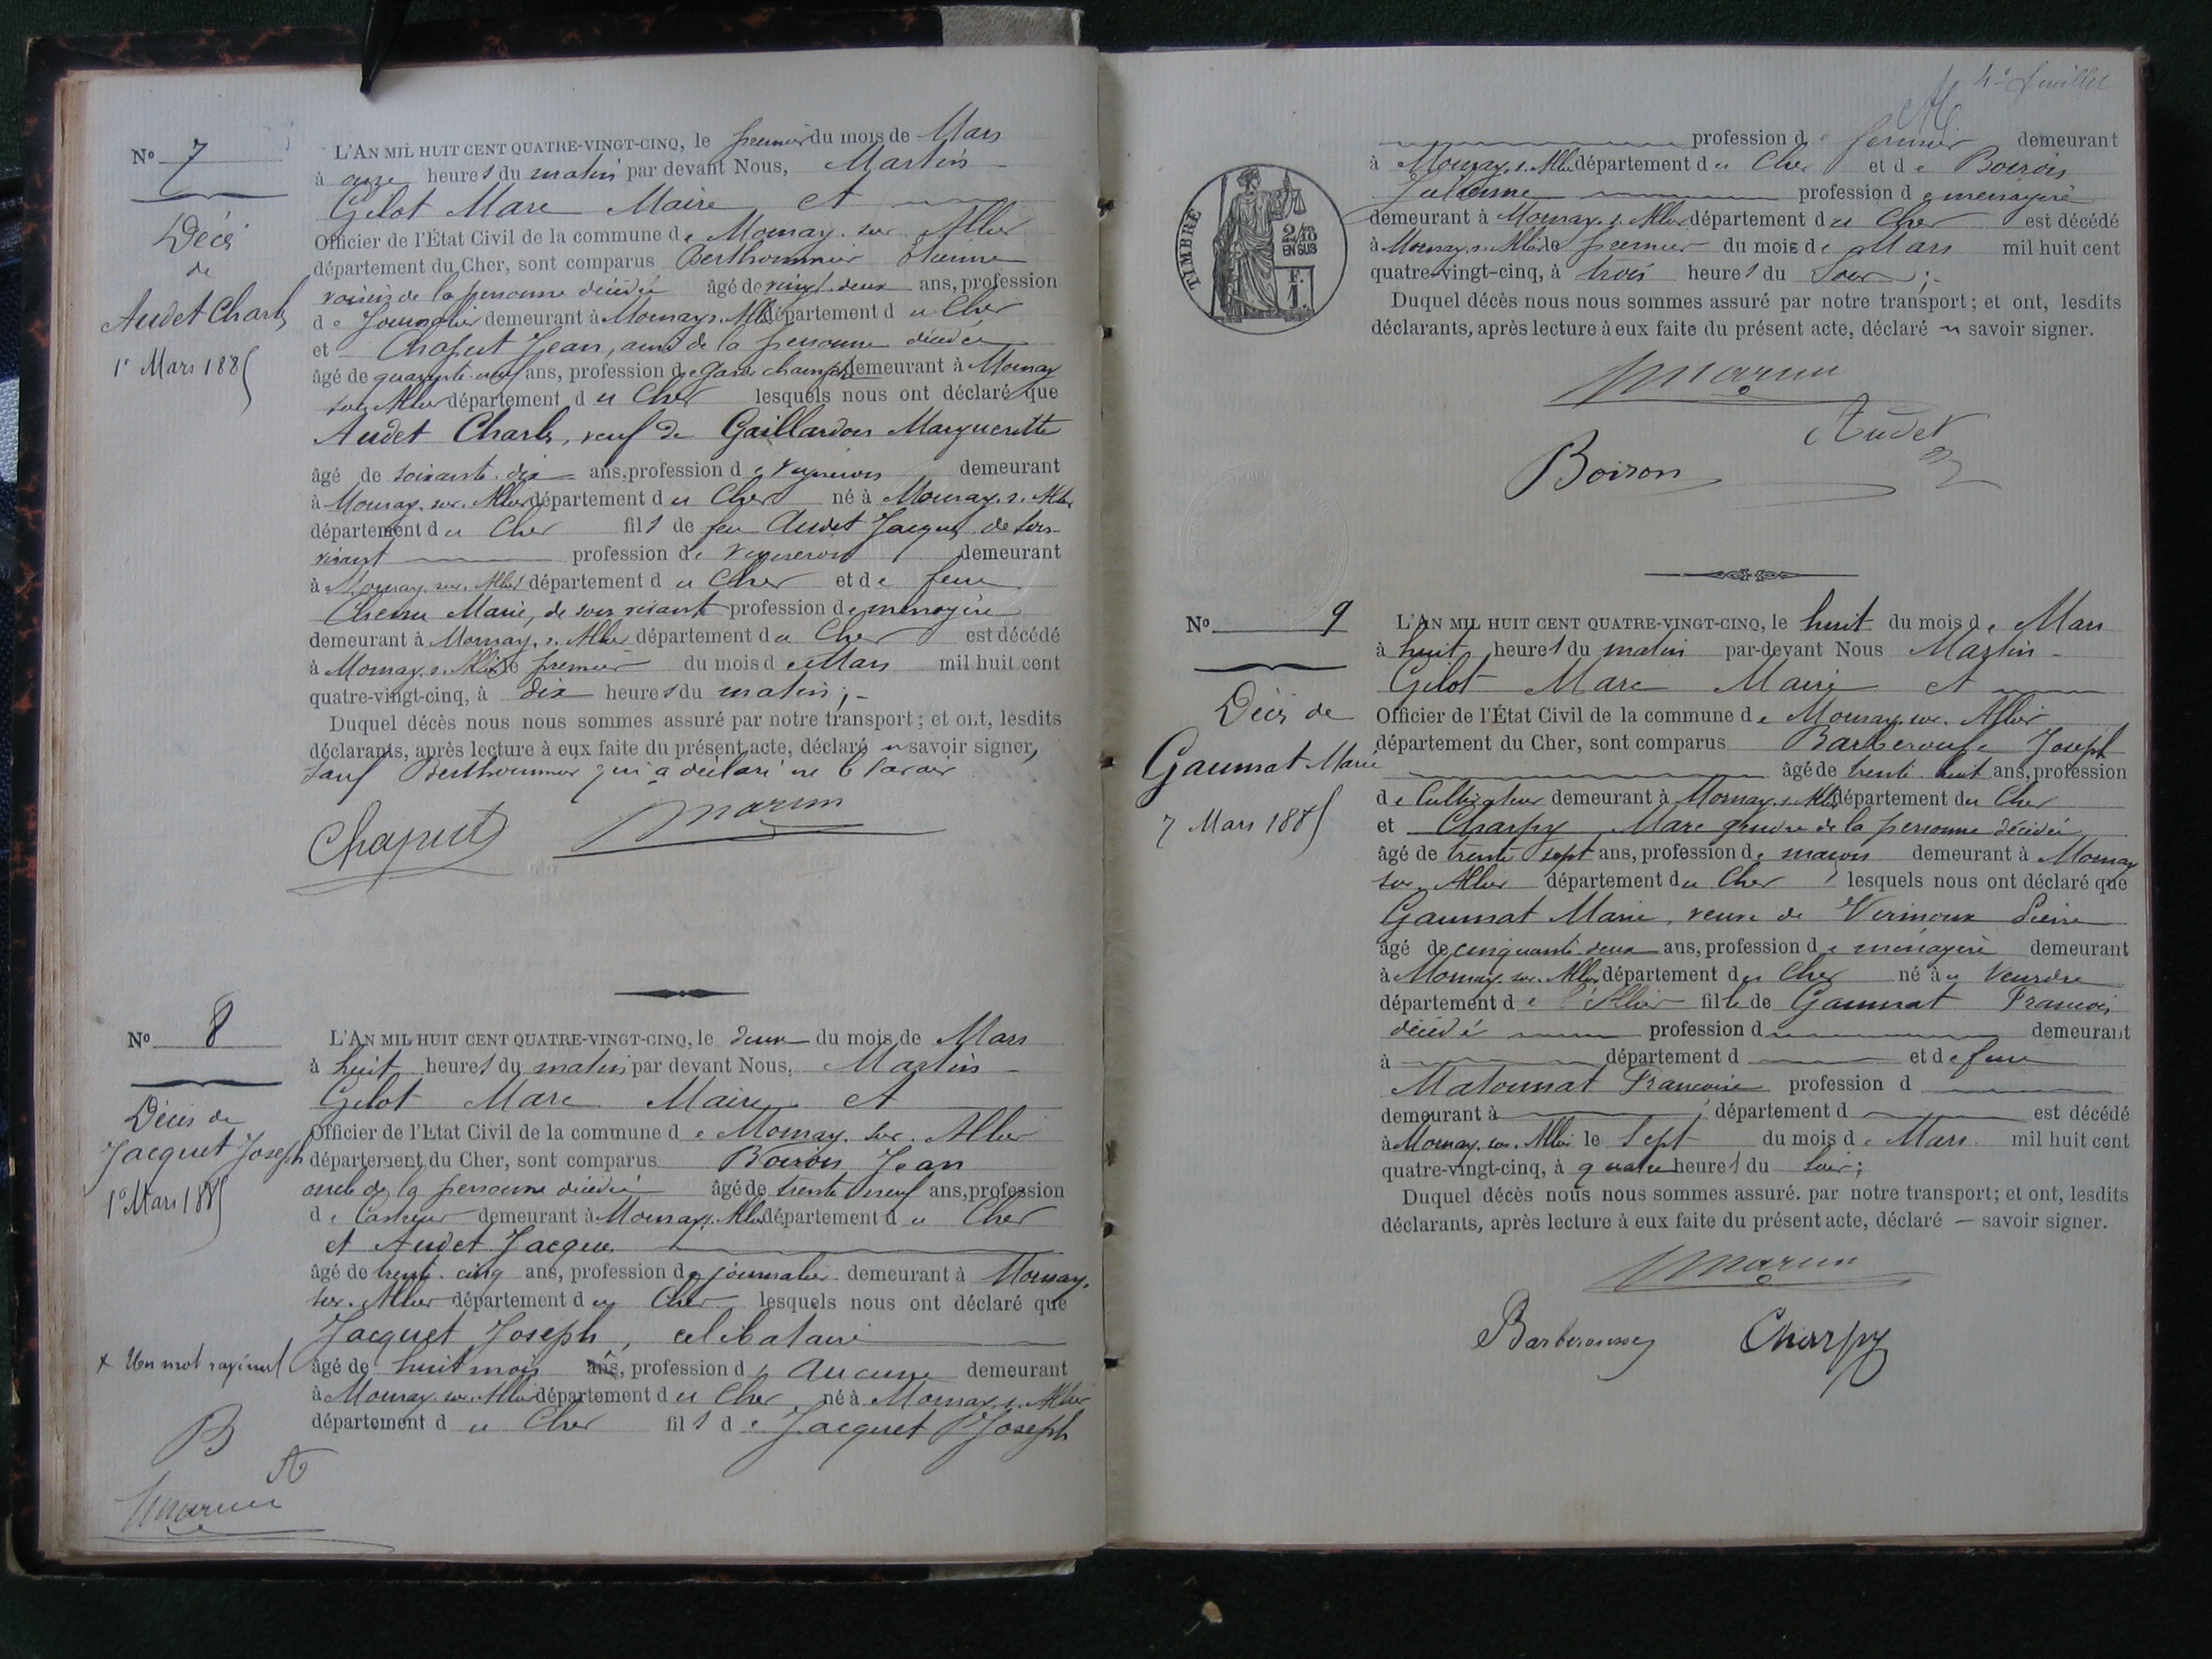 No 7
Décès
de
Audet Charles
1r Mars 1885
L'AN MIL HUIT CENT QUATRE-VINGT-CINQ, le premier du mois de Mars
à onze heures du matin par devant Nous, Martin
Gelot Marc Maire et
Officier de l'État Civil de la commune de Mornay-sur-Allier
département du Cher, sont comparus Berthommier Etienne
voisin de la personne décédée âgé de vingt-deux ans, profession
de Journalier demeurant à Mornay s. Allier département du Cher
et Chaput Jean, ami de la personne décédée
âgé de quarante-neuf ans, profession de garde champêtre demeurant à Mornay
sur Allier département du Cher lesquels nous ont déclaré que
Audet Charles, veuf de Gaillardon Margueritte
âgé de soixante-dix ans, profession de vigneron demeurant
à Mornay-sur-Allier département du Cher né à Mornay-s.-Allier
département du Cher fils de feu Audet Jacques, de son
vivant profession de vigneron demeurant
à Mornay-sur-Allier département du Cher et de feue
Chenu Marie, de son vivant profession de ménagère
demeurant à Mornay-s.-Allier département du Cher est décédé
à Mornay-s.-Allier le premier du mois de Mars mil huit cent
quatre-vingt-cinq, à dix heures du matin;-
Duquel décès nous nous sommes assuré par notre transport; et ont, lesdits
déclarants, après lecture à eux faite du présent acte, déclaré savoir signer,
sauf Berthommier qui a déclaré ne le savoir
Chaput Martin
No 8
Décès de
Jacquet Joseph
1r Mars 1885
L'AN MIL HUIT CENT QUATRE-VINGT-CINQ, le deux du mois de Mars
à huit heures du matin par devant Nous, Martin-
Gelot Marc Maire et
Officier de l'Etat Civil de la commune de Mornay-sur-Allier
département du Cher, sont comparus Boiron Jean
oncle de la personne décédée âgé de trente neuf ans, profession
de demeurant à Mornay s. Allier département du Cher
et Audet Jacques
âgé de trente-cinq ans, profession de journalier demeurant à Mornay-
sur-Allier département du Cher lesquels nous ont déclaré que
Jacquet Joseph, célibataire
âgé de huit mois ans, profession d aucune demeurant
à Mornay-sur-Allier département du Cher né à Mornay-s.-Allier
département du Cher fils de Jacquet Joseph
x Un mot rayé nul
B
A
Martin
4e feuillet
profession de fermier demeurant
à Mornay-s.-Allier département du Cher et de Boiron
Julienne profession de ménagère
demeurant à Mornay-s.-Allier département du Cher est décédé
à Mornay-s.-Allier le premier du mois de Mars mil huit cent
quatre-vingt-cinq, à trois heures du soir;-
Duquel décès nous nous sommes assuré par notre transport; et ont, lesdits
déclarants, après lecture à eux faite du présent acte, déclaré savoir signer.
TIMBRE
2/10
EN SUS
F.
1.
Martin
Audet
Boiron
No 9
Décès de
Gaumat Marie
7 Mars 1885
L'AN MIL HUIT CENT QUATRE-VINGT-CINQ, le huit du mois de Mars
à huit heures du matin par-devant Nous Martin-
Gelot Marc Maire et
Officier de l'État Civil de la commune de Mornay-sur-Allier
département du Cher, sont comparus Barberousse Joseph
âgé de trente-huit ans, profession
de Cultivateur demeurant à Mornay-s.-Allier département du Cher
et Charpy Marc gendre de la personne décédée
âgé de trente sept ans, profession de maçon demeurant à Mornay
sur-Allier département du Cher lesquels nous ont déclaré que
Gaumat Marie, veuve de Vermoux Pierre
âgé de cinquante-deux ans, profession de ménagère demeurant
à Mornay-sur-Allier département du Cher né au Veurdre
département de l'Allier fille de Gaumat François
décédé profession d demeurant
à département d et de feue
Matounat Françoise profession d
demeurant à département d est décédé
à Mornay-sur-Allier le sept du mois de Mars mil huit cent
quatre-vingt-cinq, à quatre heures du soir;
Duquel décès nous nous sommes assuré. par notre transport; et ont, lesdits
déclarants, après lecture à eux faite du présent acte, déclaré — savoir signer.
Martin
Barberousse Charpy